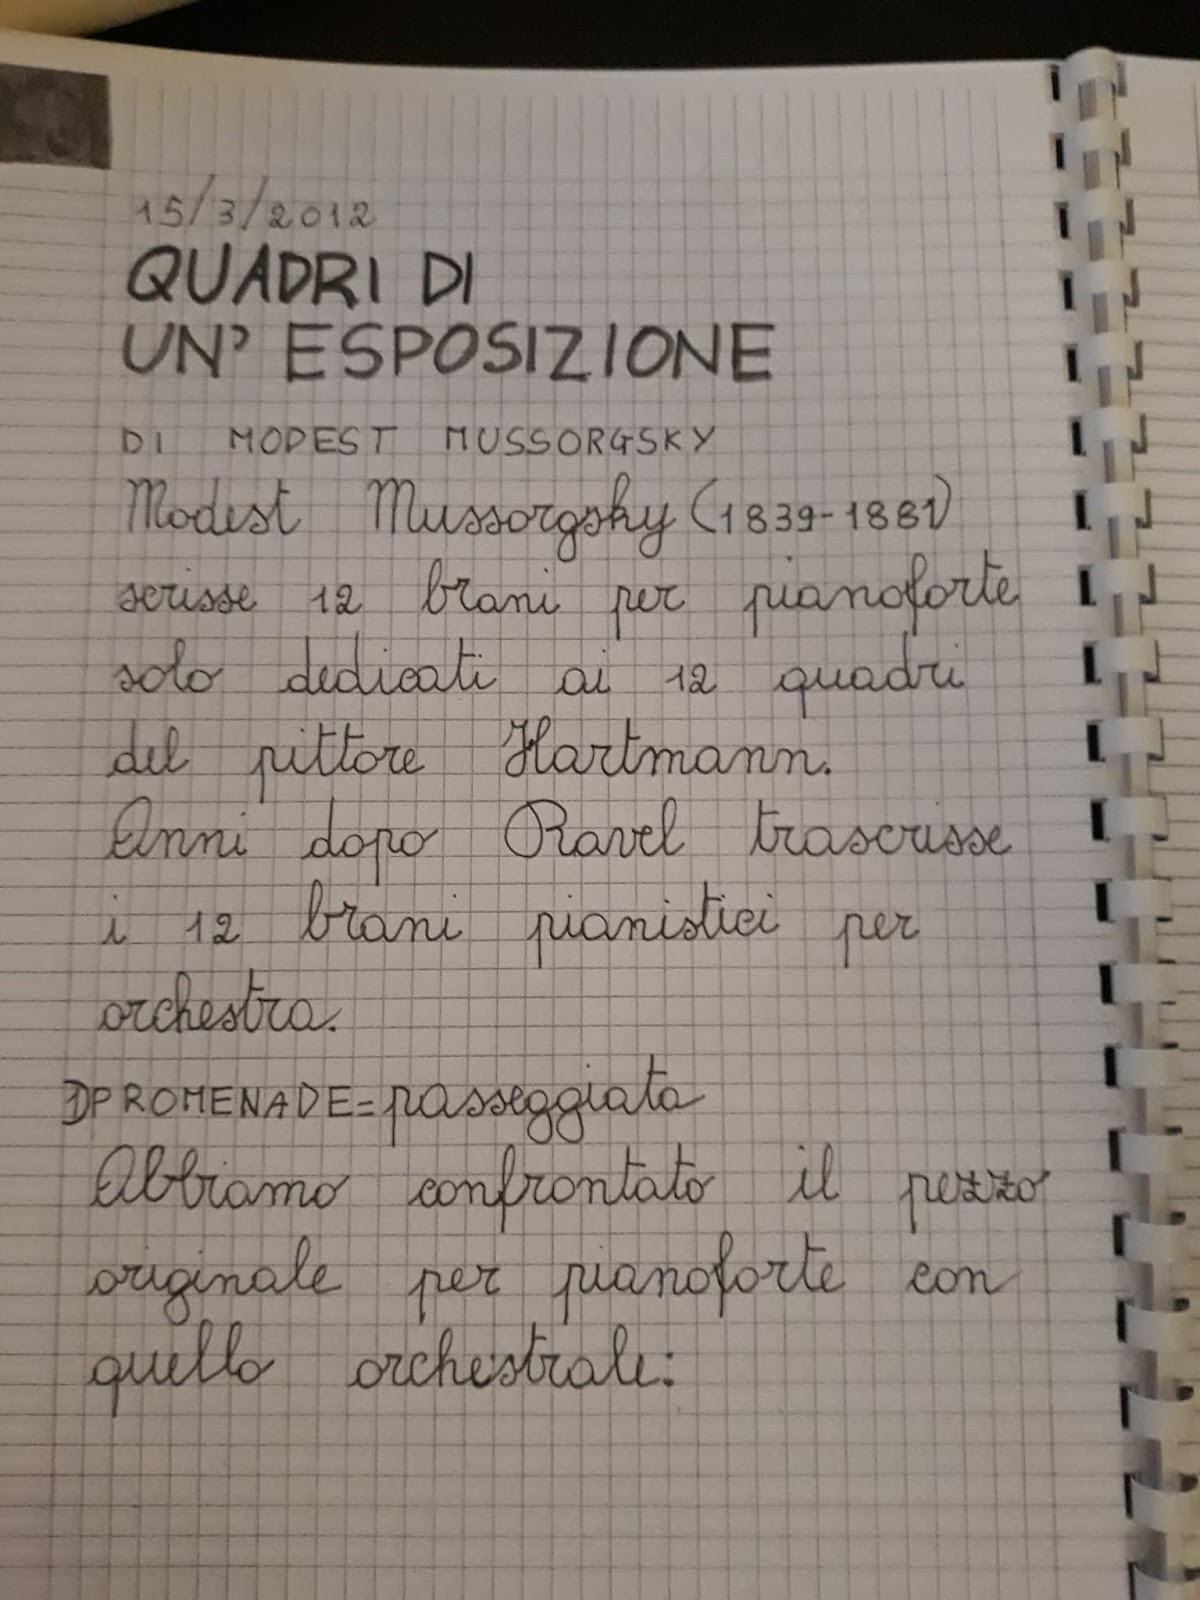 15/3/2012
QUADRI DI
UN' ESPOSIZIONE
DI MODEST MUSSORGSKY
Modest Mussorgsky (1839-1881)
scrisse 12 brani per pianoforte
solo dedicati ai 12 quadri
del pittore Hartmann.
Anni dopo Ravel trascrisse
i 12 brani pianistici per
orchestra.
1)PROMENADE=passeggiata
Abbiamo confrontato il pezzo
originale per pianoforte con
quello orchestrale: